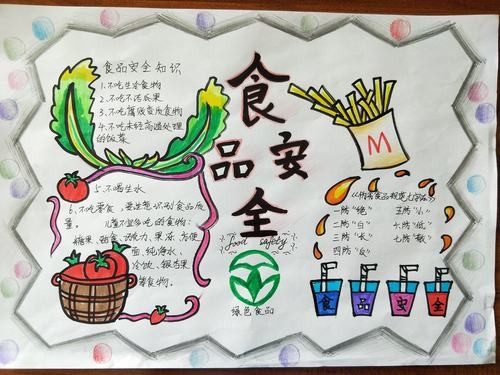 食品安全
food safety
食品安全知识
1.不吃生冷食物
2.不吃不洁瓜果
3.不吃腐败变质食物
4.不吃未经高温处理
的饭菜
5.不喝生水
6.不吃零食,要注意识别食品质
量。
儿童不宜多吃的食物:
糖果、甜食、巧克力、果冻、方便
面、纯净水、
冷饮、银杏果
等食物。
绿色食品
M
一防"艳"
二防"白"
三防"长"
四防"反"
五防"小"
六防"低"
七防"散"
食 品 安 全